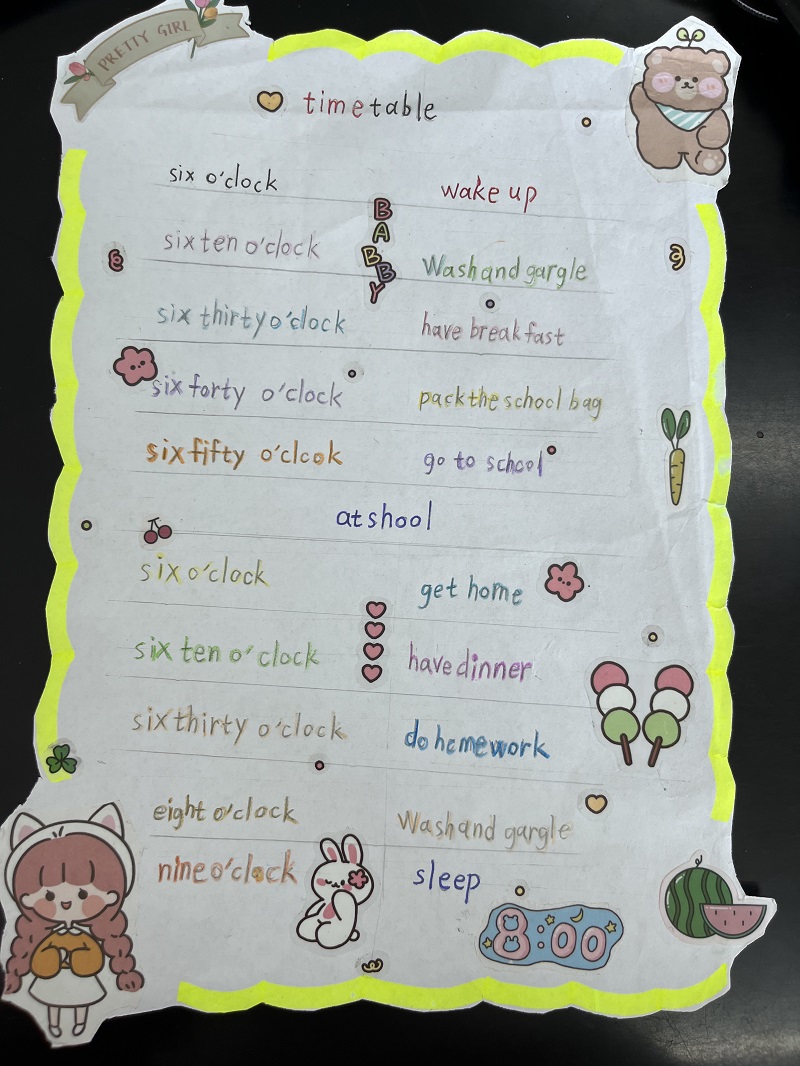 PRETTY GIRL
timetable
six o'clock wake up
BABBY
six ten o'clock Wash and gargle
six thirty o'clock have breakfast
six forty o'clock pack the school bag
six fifty o'clcok go to school
at shool
six o'clock get home
six ten o'clock have dinner
six thirty o'clock do homework
eight o'clock Wash and gargle
nine o'clock sleep
8:00